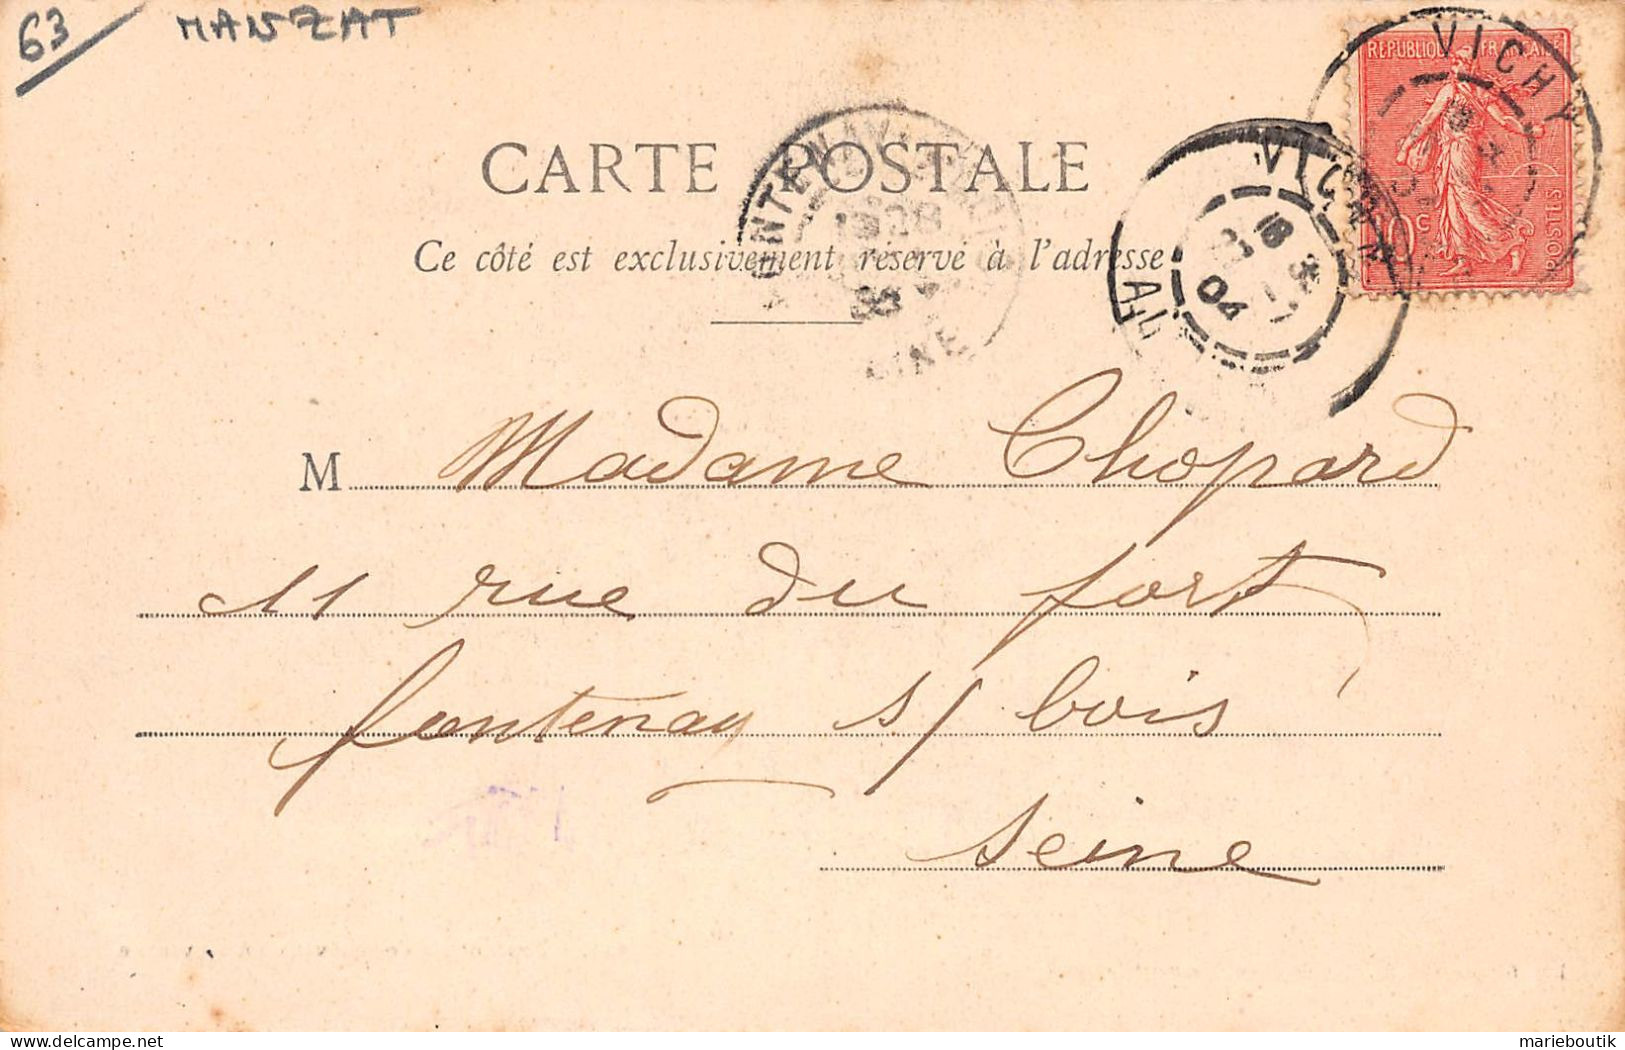 63 MANZAT
REPUBLIQUE FRANÇAISE
10c POSTES
VICHY
VICHY
04
CARTE POSTALE
Ce côté est exclusivement réservé à l'adresse
M Madame Chopard
11 rue du fort
fontenay s/ bois
Seine
delcampe.net
marieboutik